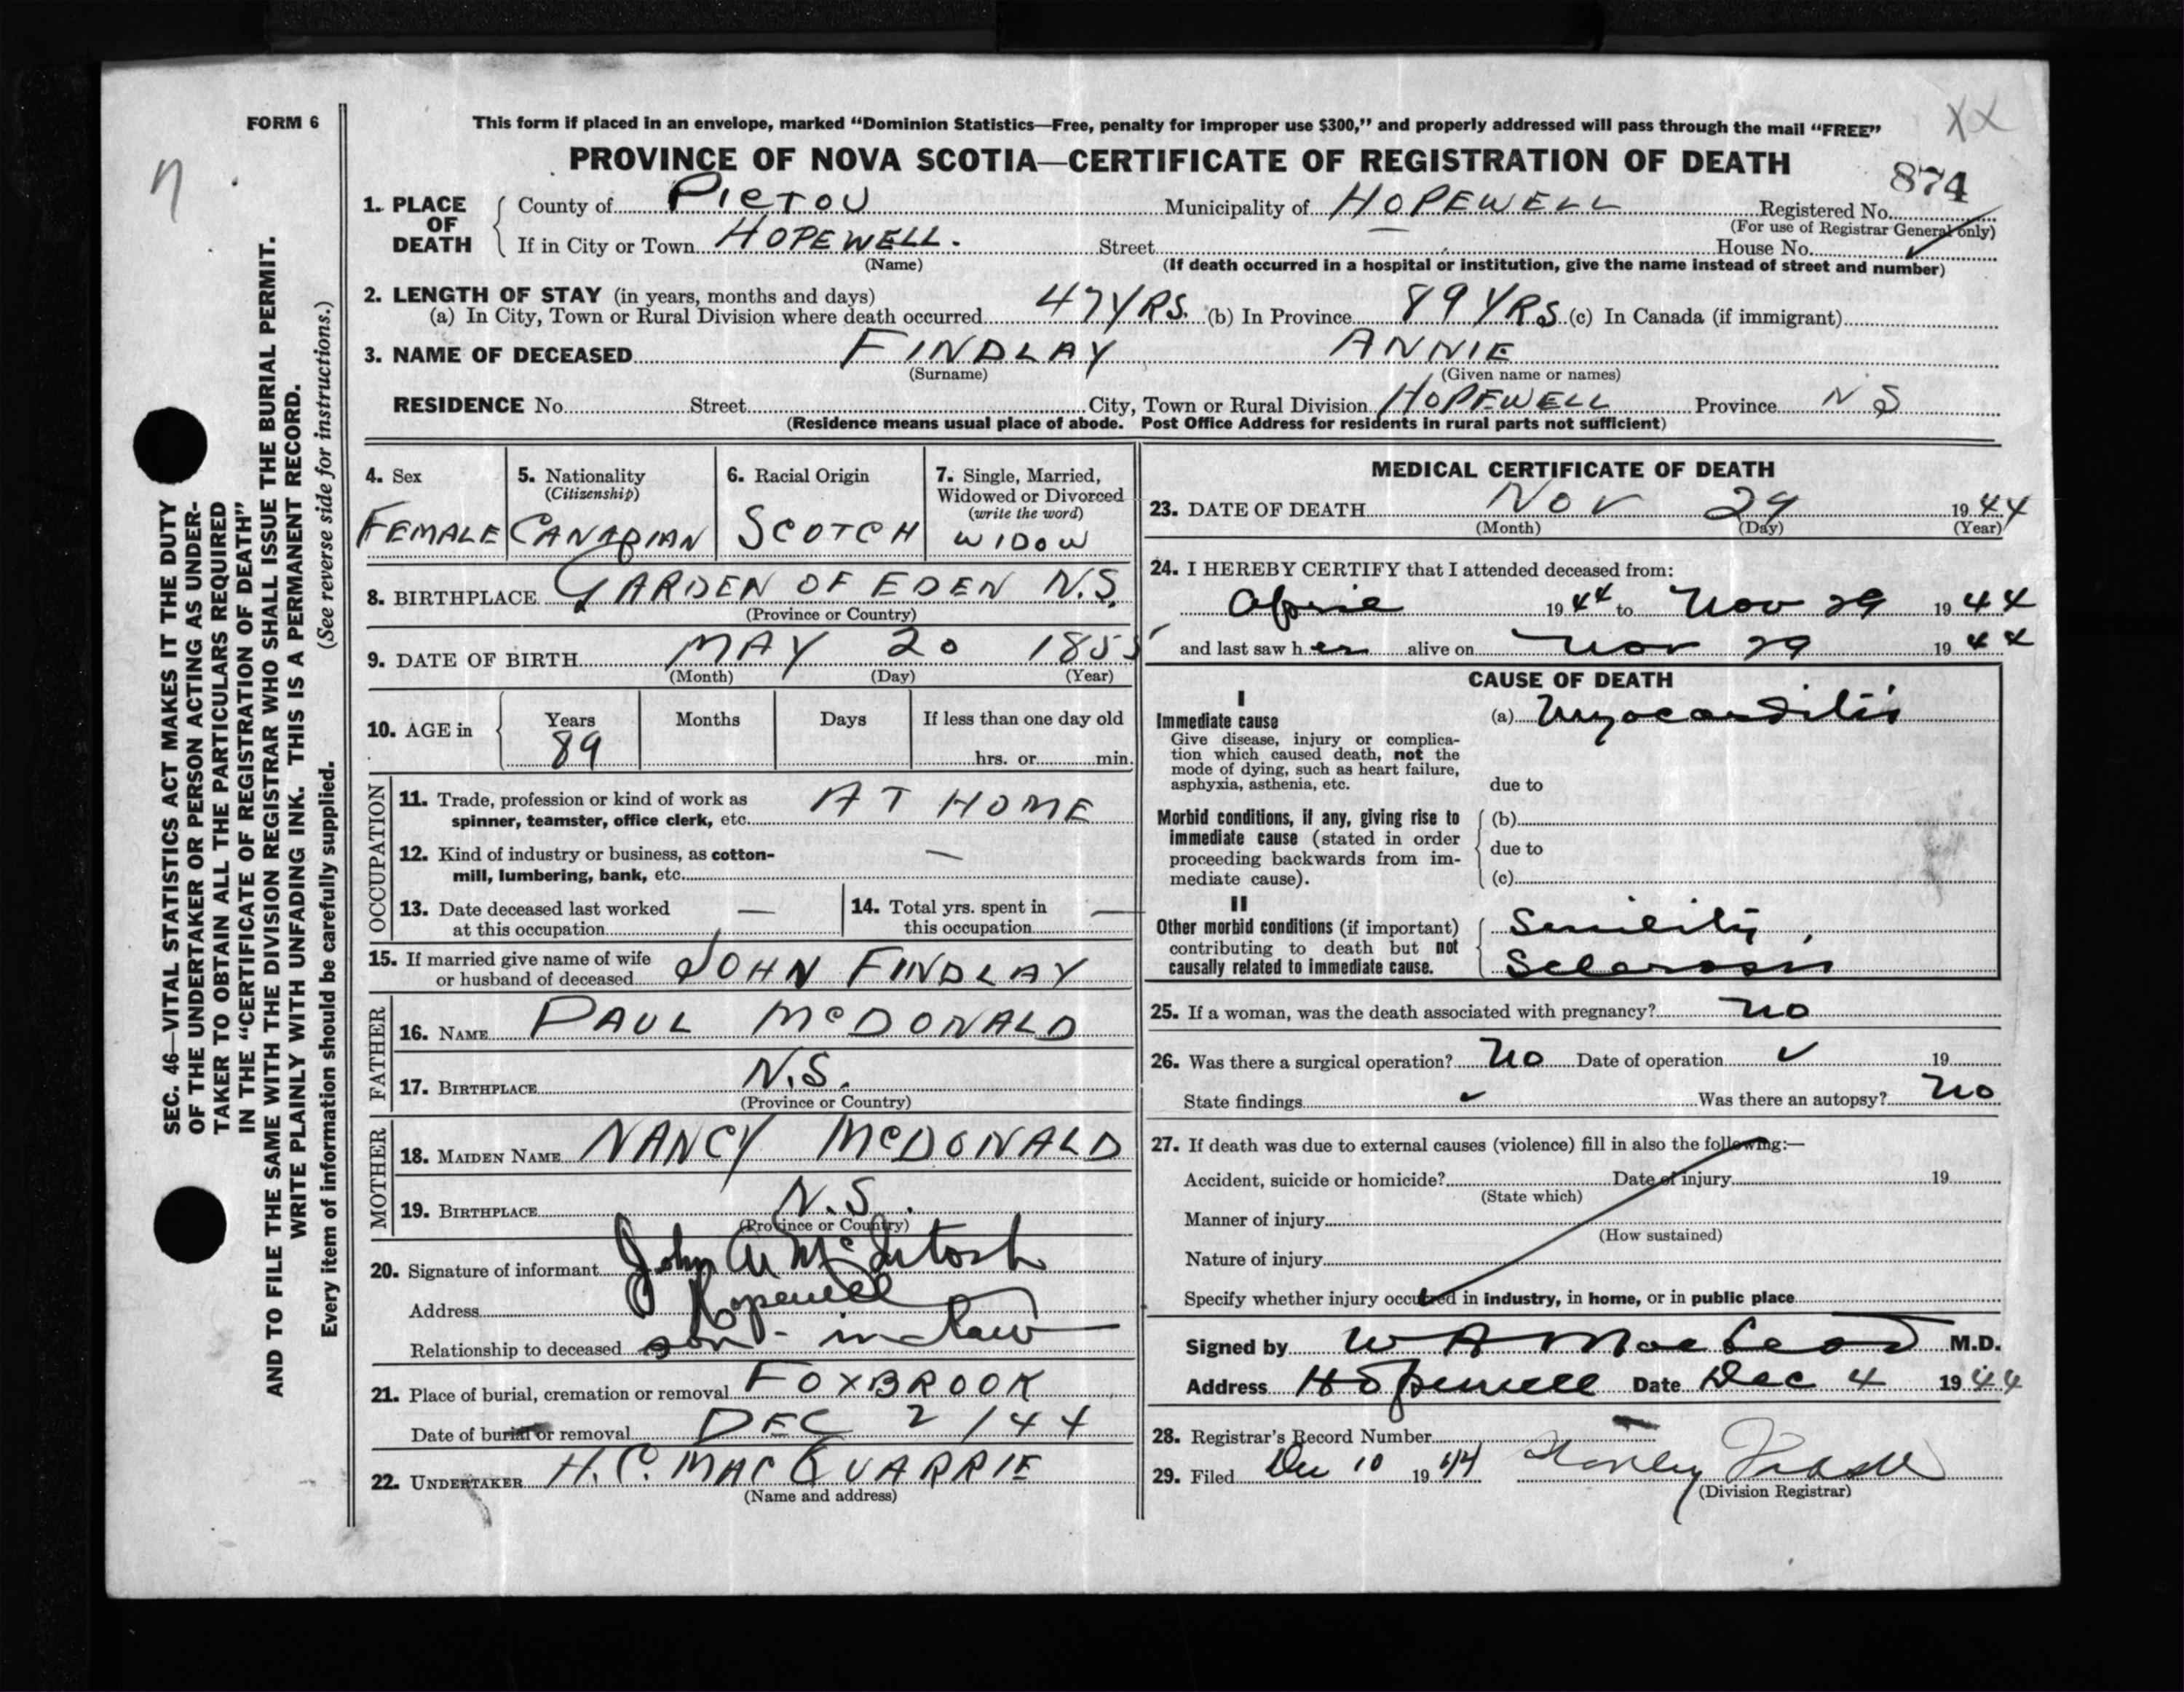 FORM 6
This form if placed in an envelope, marked “Dominion Statistics—Free, penalty for improper use $300,” and properly addressed will pass through the mail “FREE”
XX
n
PROVINCE OF NOVA SCOTIA—CERTIFICATE OF REGISTRATION OF DEATH
874
1. PLACE OF DEATH
County of PICTOU Municipality of HOPEWELL Registered No.
(For use of Registrar General only)
If in City or Town HOPEWELL. Street House No.
(Name) (If death occurred in a hospital or institution, give the name instead of street and number)
2. LENGTH OF STAY (in years, months and days)
(a) In City, Town or Rural Division where death occurred 47 YRS. (b) In Province 89 YRS (c) In Canada (if immigrant)
3. NAME OF DECEASED FINDLAY ANNIE
(Surname) (Given name or names)
RESIDENCE No. Street City, Town or Rural Division HOPEWELL Province N S
(Residence means usual place of abode. Post Office Address for residents in rural parts not sufficient)
4. Sex
FEMALE
5. Nationality
(Citizenship)
CANADIAN
6. Racial Origin
SCOTCH
7. Single, Married,
Widowed or Divorced
(write the word)
WIDOW
8. BIRTHPLACE GARDEN OF EDEN N.S.
(Province or Country)
9. DATE OF BIRTH MAY 20 1855
(Month) (Day) (Year)
10. AGE in
Years Months Days If less than one day old
89 hrs. or min.
OCCUPATION
11. Trade, profession or kind of work as
spinner, teamster, office clerk, etc. AT HOME
12. Kind of industry or business, as cotton-
mill, lumbering, bank, etc. —
13. Date deceased last worked
at this occupation —
14. Total yrs. spent in
this occupation —
15. If married give name of wife
or husband of deceased JOHN FINDLAY
FATHER
16. NAME PAUL McDONALD
17. BIRTHPLACE N.S.
(Province or Country)
MOTHER
18. MAIDEN NAME NANCY McDONALD
19. BIRTHPLACE N.S.
(Province or Country)
20. Signature of informant John A McIntosh
Address Hopewell
Relationship to deceased son-in-law
21. Place of burial, cremation or removal FOXBROOK
Date of burial or removal DEC 2 /44
22. UNDERTAKER H.C. MACQUARRIE
(Name and address)
MEDICAL CERTIFICATE OF DEATH
23. DATE OF DEATH NOV 29 1944
(Month) (Day) (Year)
24. I HEREBY CERTIFY that I attended deceased from:
April 1944 to Nov 29 1944
and last saw her alive on Nov 29 1944
CAUSE OF DEATH
I
Immediate cause (a) Myocarditis
Give disease, injury or complica-
tion which caused death, not the
mode of dying, such as heart failure,
asphyxia, asthenia, etc. due to
Morbid conditions, if any, giving rise to (b)
immediate cause (stated in order
proceeding backwards from im- due to
mediate cause). (c)
II
Other morbid conditions (if important) Senility,
contributing to death but not
causally related to immediate cause. Sclerosis
25. If a woman, was the death associated with pregnancy? No
26. Was there a surgical operation? No Date of operation ✓ 19
State findings ✓ Was there an autopsy? No
27. If death was due to external causes (violence) fill in also the following:—
Accident, suicide or homicide? Date of injury 19
(State which)
Manner of injury
(How sustained)
Nature of injury
Specify whether injury occurred in industry, in home, or in public place
Signed by W A MacLeod M.D.
Address Hopewell Date Dec 4 1944
28. Registrar's Record Number
29. Filed Dec 10 1944
(Division Registrar)
SEC. 46—VITAL STATISTICS ACT MAKES IT THE DUTY
OF THE UNDERTAKER OR PERSON ACTING AS UNDER-
TAKER TO OBTAIN ALL THE PARTICULARS REQUIRED
IN THE “CERTIFICATE OF REGISTRATION OF DEATH”
AND TO FILE THE SAME WITH THE DIVISION REGISTRAR WHO SHALL ISSUE THE BURIAL PERMIT.
WRITE PLAINLY WITH UNFADING INK. THIS IS A PERMANENT RECORD.
Every item of information should be carefully supplied. (See reverse side for instructions.)